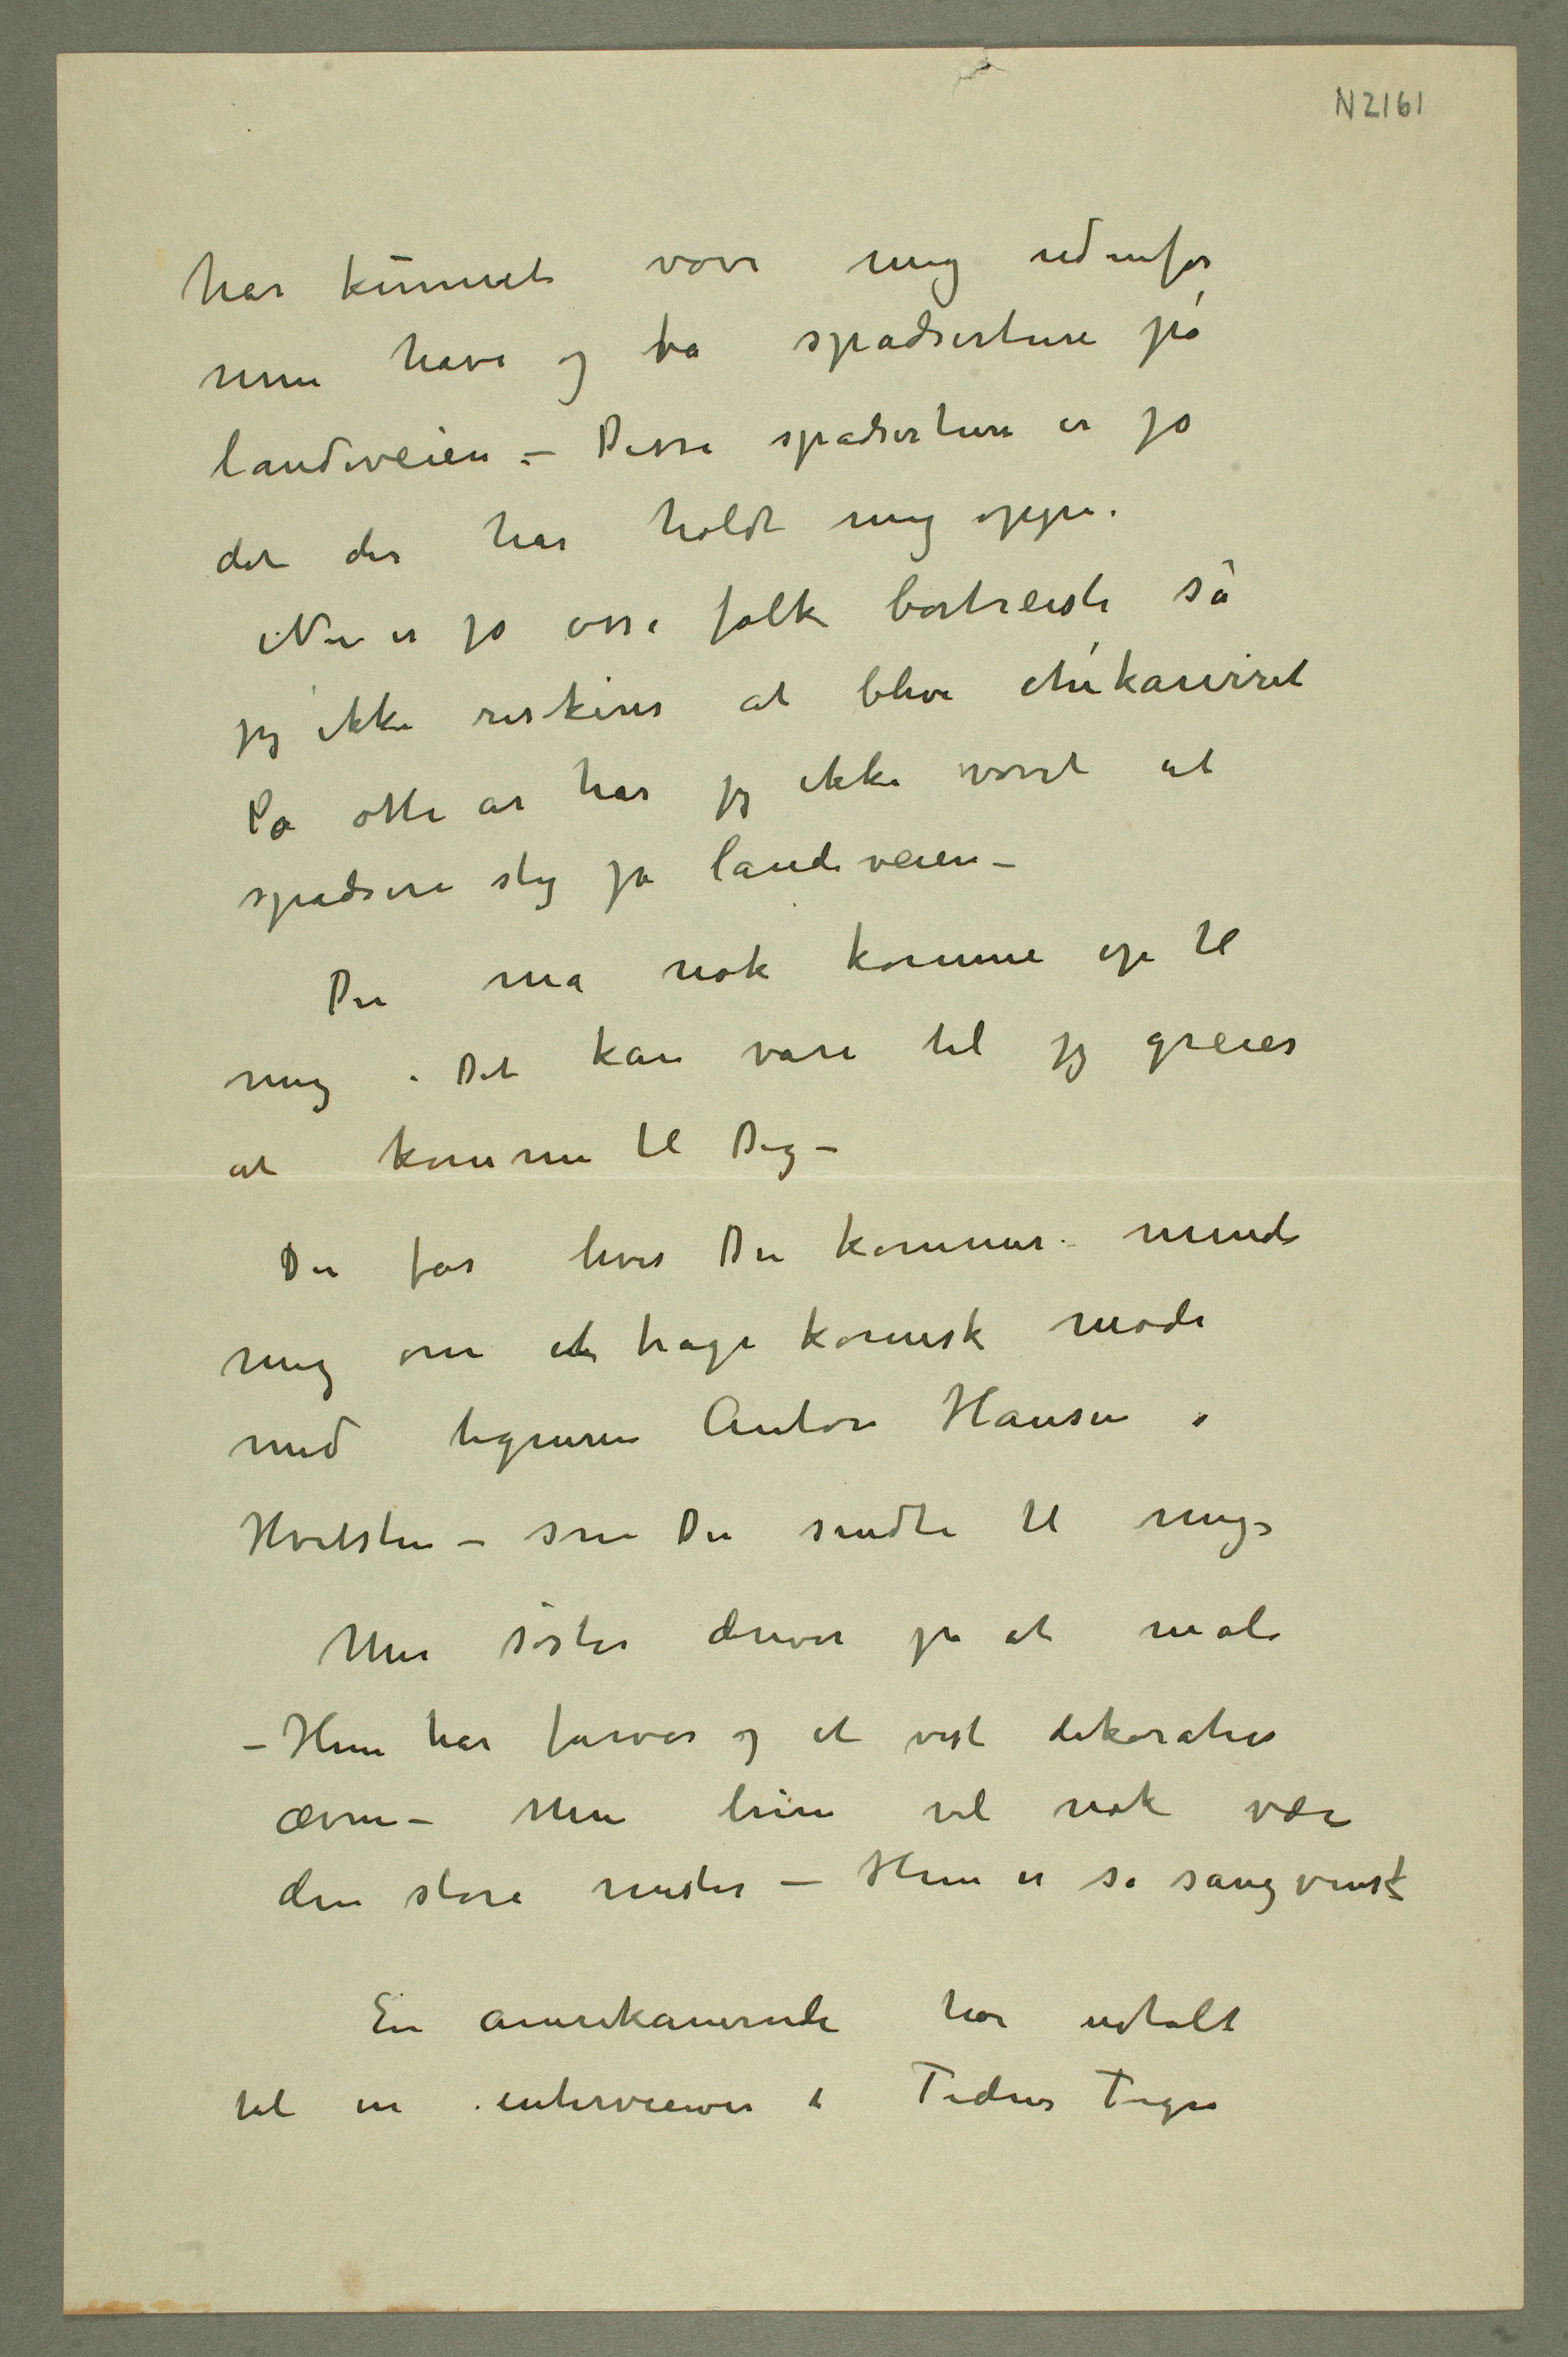 N 2161
har kunnet vove mig udenfor
min have og ta spadserture på
landeveien. – Disse spadserture er jo
det der har holdt mig oppe.
Nu er jo osse folk bortreiste så
jeg ikke riskerer at blive chikaneret
På otte år har jeg ikke vovet at
spadsere slig på landeveien –
Du må nok komme op til
mig. Det kan vare til jeg greier
at komme til Dig –
Du får hvis Du kommer minde
mig om et tragikomisk møde
med tegneren Anton Hansen i
Hvitsten – som Du sendte til mig
Min søster driver på at male
– Hun har farver og et vist dekorativ
ævne – Men hun vil nok være
den store mester – Hun er så sangvinsk
En amerikanerinde har udtalt
til en interviewer i Tidens Tegn